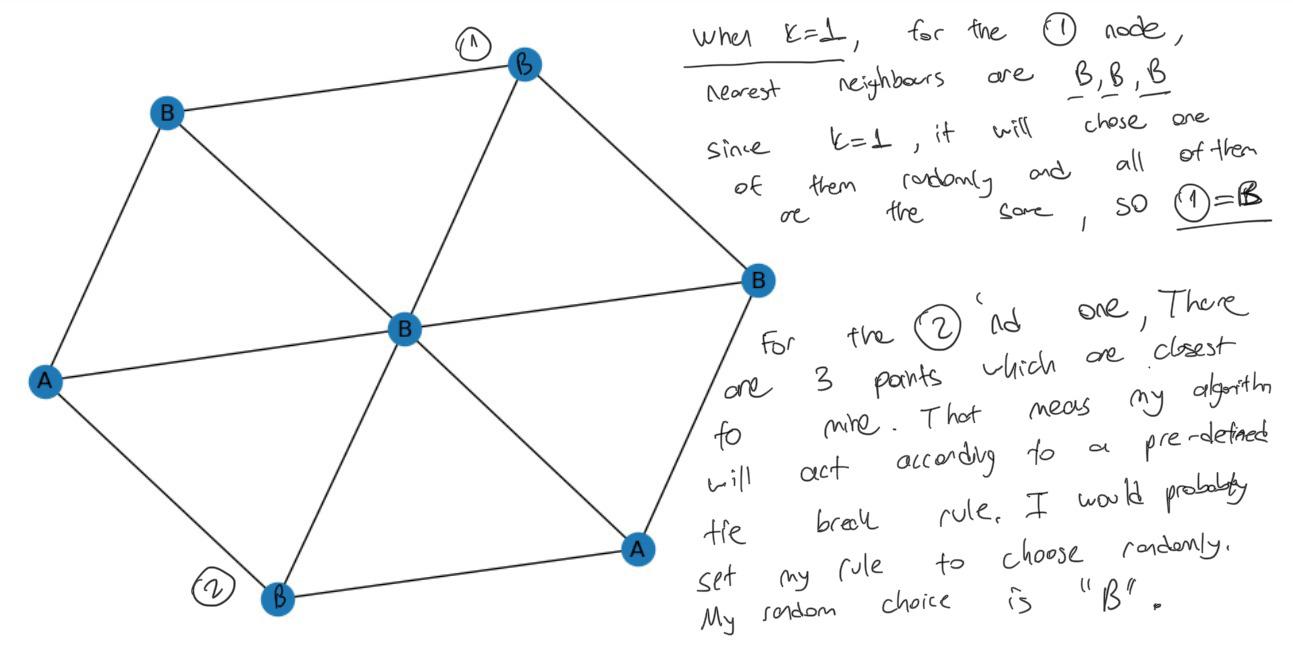 ①
B
B
B
B
A
A
②
B
when k=1, for the ① node,
nearest neighbours are B, B, B
since k=1, it will chose one
of them randomly and all of them
are the same, so ①=B
For the ② 'nd one, There
are 3 points which are closest
to mine. That means my algorithm
will act according to a pre-defined
tie break rule. I would probably
set my rule to choose randomly.
My random choice is "B".